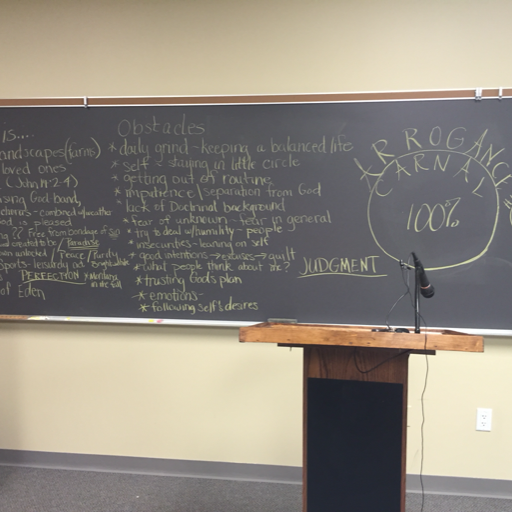 is....
andscapes (farms)
loved ones
(John 14:2-4)
sing God band,
d is pleased
?? Free from bondage of sin
created to be / Paradise
un infected / Peace / Purity
PERFECTION
of Eden
Obstacles
* daily grind - keeping a balanced life
* self - staying in little circle
* getting out of routine
* impatience \ separation from God
* lack of Doctrinal background
* fear of unknown - fear in general
* try to deal w/humility - people
* insecurities - leaning on self
* good intentions → excuses → guilt
* what people think about me?
* trusting God's plan
* emotions -
* following self's desires
JUDGMENT
ARROGANCE
CARNAL
100%